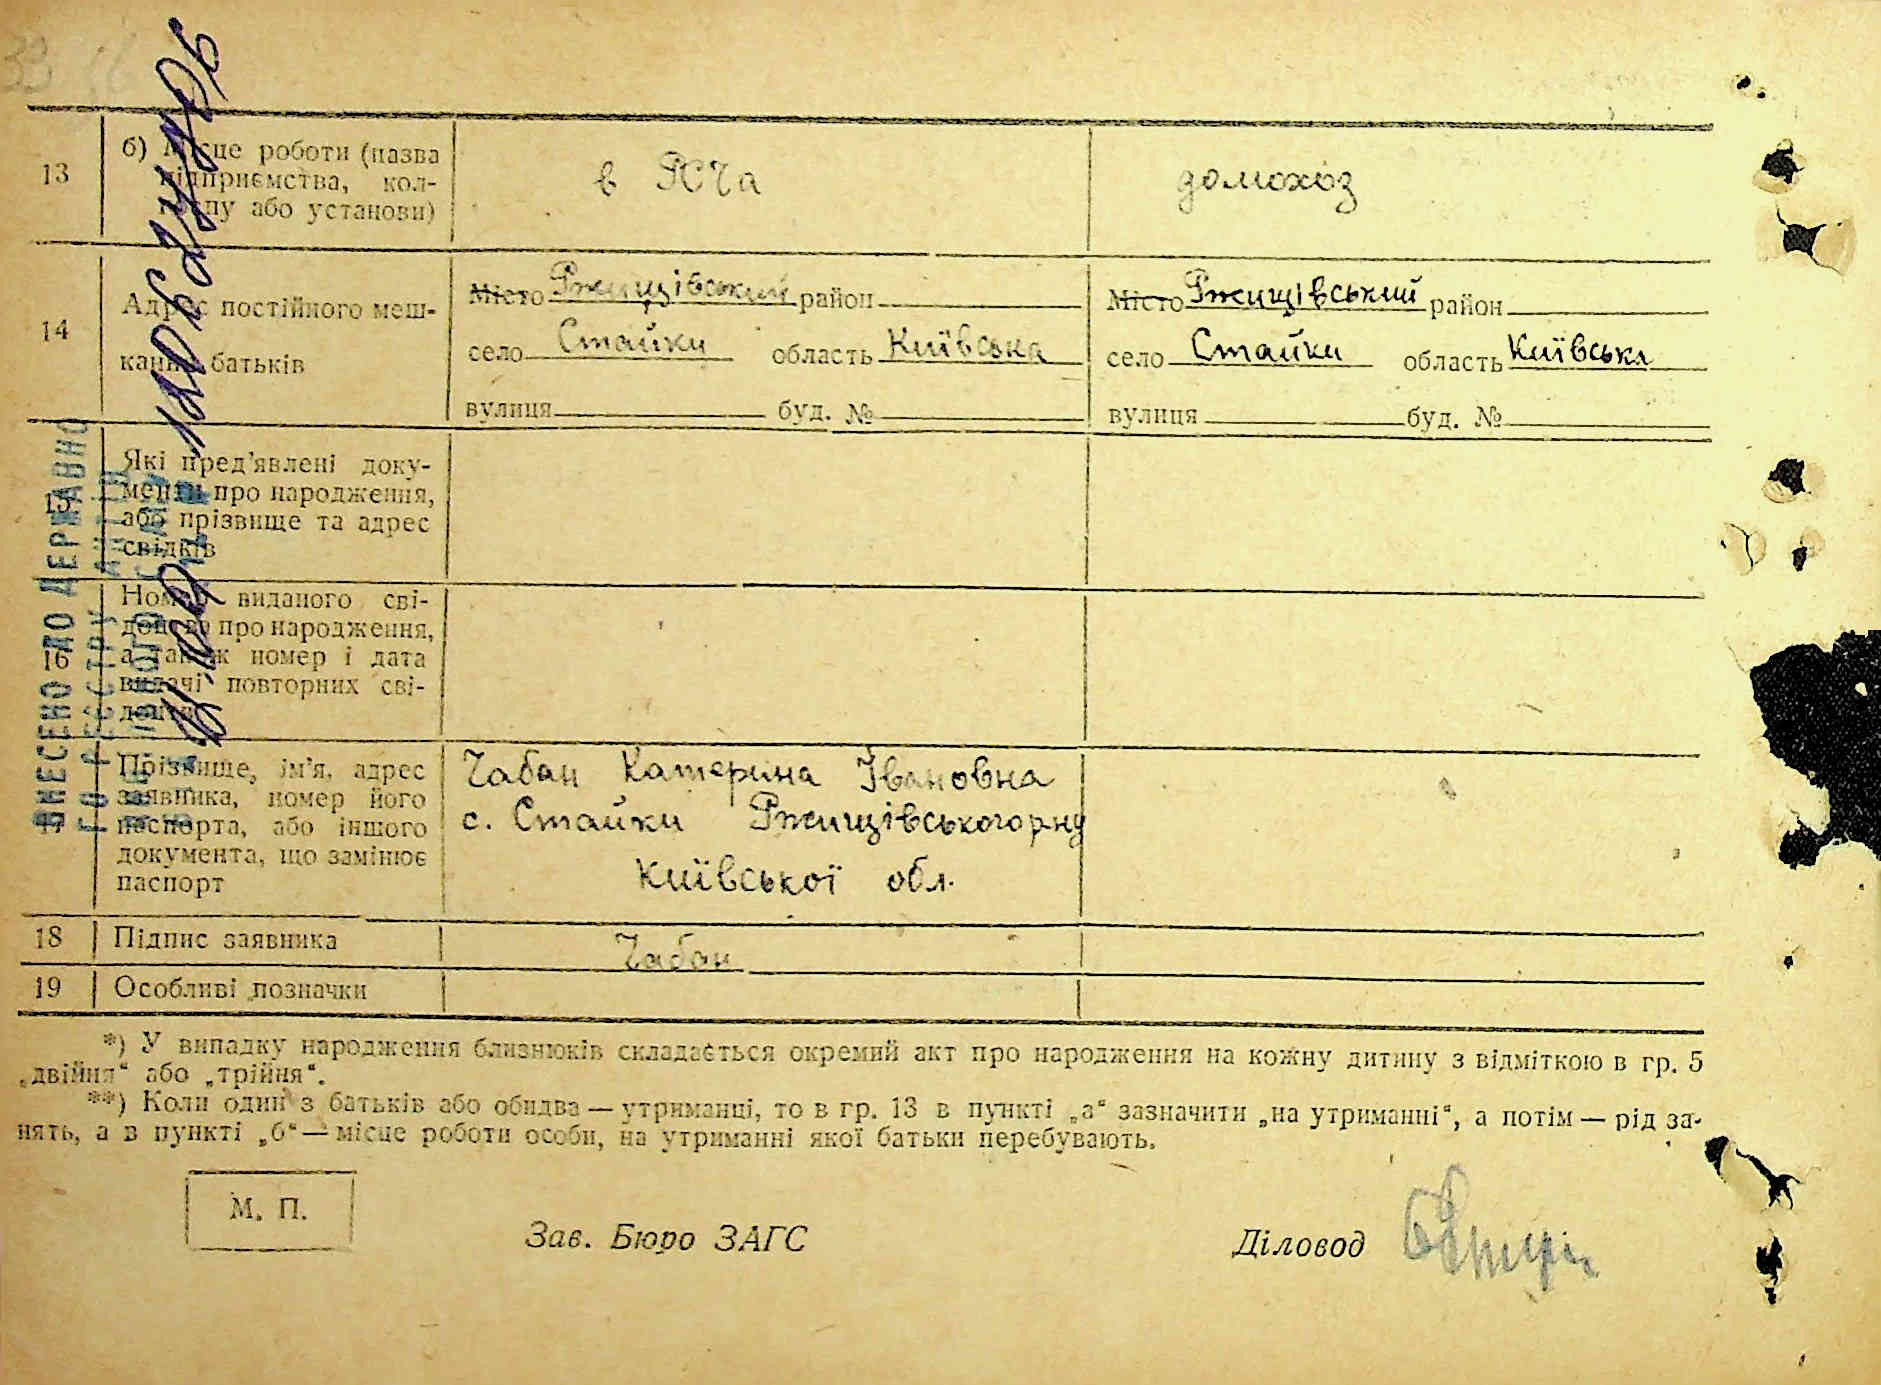 13
б) Місце роботи (назва
підприємства, кол-
госпу або установи)
в РСЧа
домохоз
14
Адрес постійного меш-
кання батьків
Місто Ржищівський район
село Стайки область Київська
вулиця буд. №
Місто Ржищівський район
село Стайки область Київська
вулиця буд. №
15
Які пред’явлені доку-
менти про народження,
або прізвище та адрес
свідків
16
Номер виданого сві-
доцтва про народження,
а також номер і дата
видачі повторних сві-
доцтв
17
Прізвище, ім’я, адрес
заявника, номер його
паспорта, або іншого
документа, що замінює
паспорт
Чабан Катерина Івановна
с. Стайки Ржищівського р-ну
Київської обл.
18
Підпис заявника
Чабан
19
Особливі позначки
ВНЕСЕНО ДО ДЕРЖАВНО
ГО РЕЄСТРУ
*) У випадку народження близнюків складається окремий акт про народження на кожну дитину з відміткою в гр. 5
„двійня“ або „трійня“.
**) Коли один з батьків або обидва — утриманці, то в гр. 13 в пункті „а“ зазначити „на утриманні“, а потім — рід за-
нять, а в пункті „б“ — місце роботи особи, на утриманні якої батьки перебувають.
М. П.
Зав. Бюро ЗАГС
Діловод